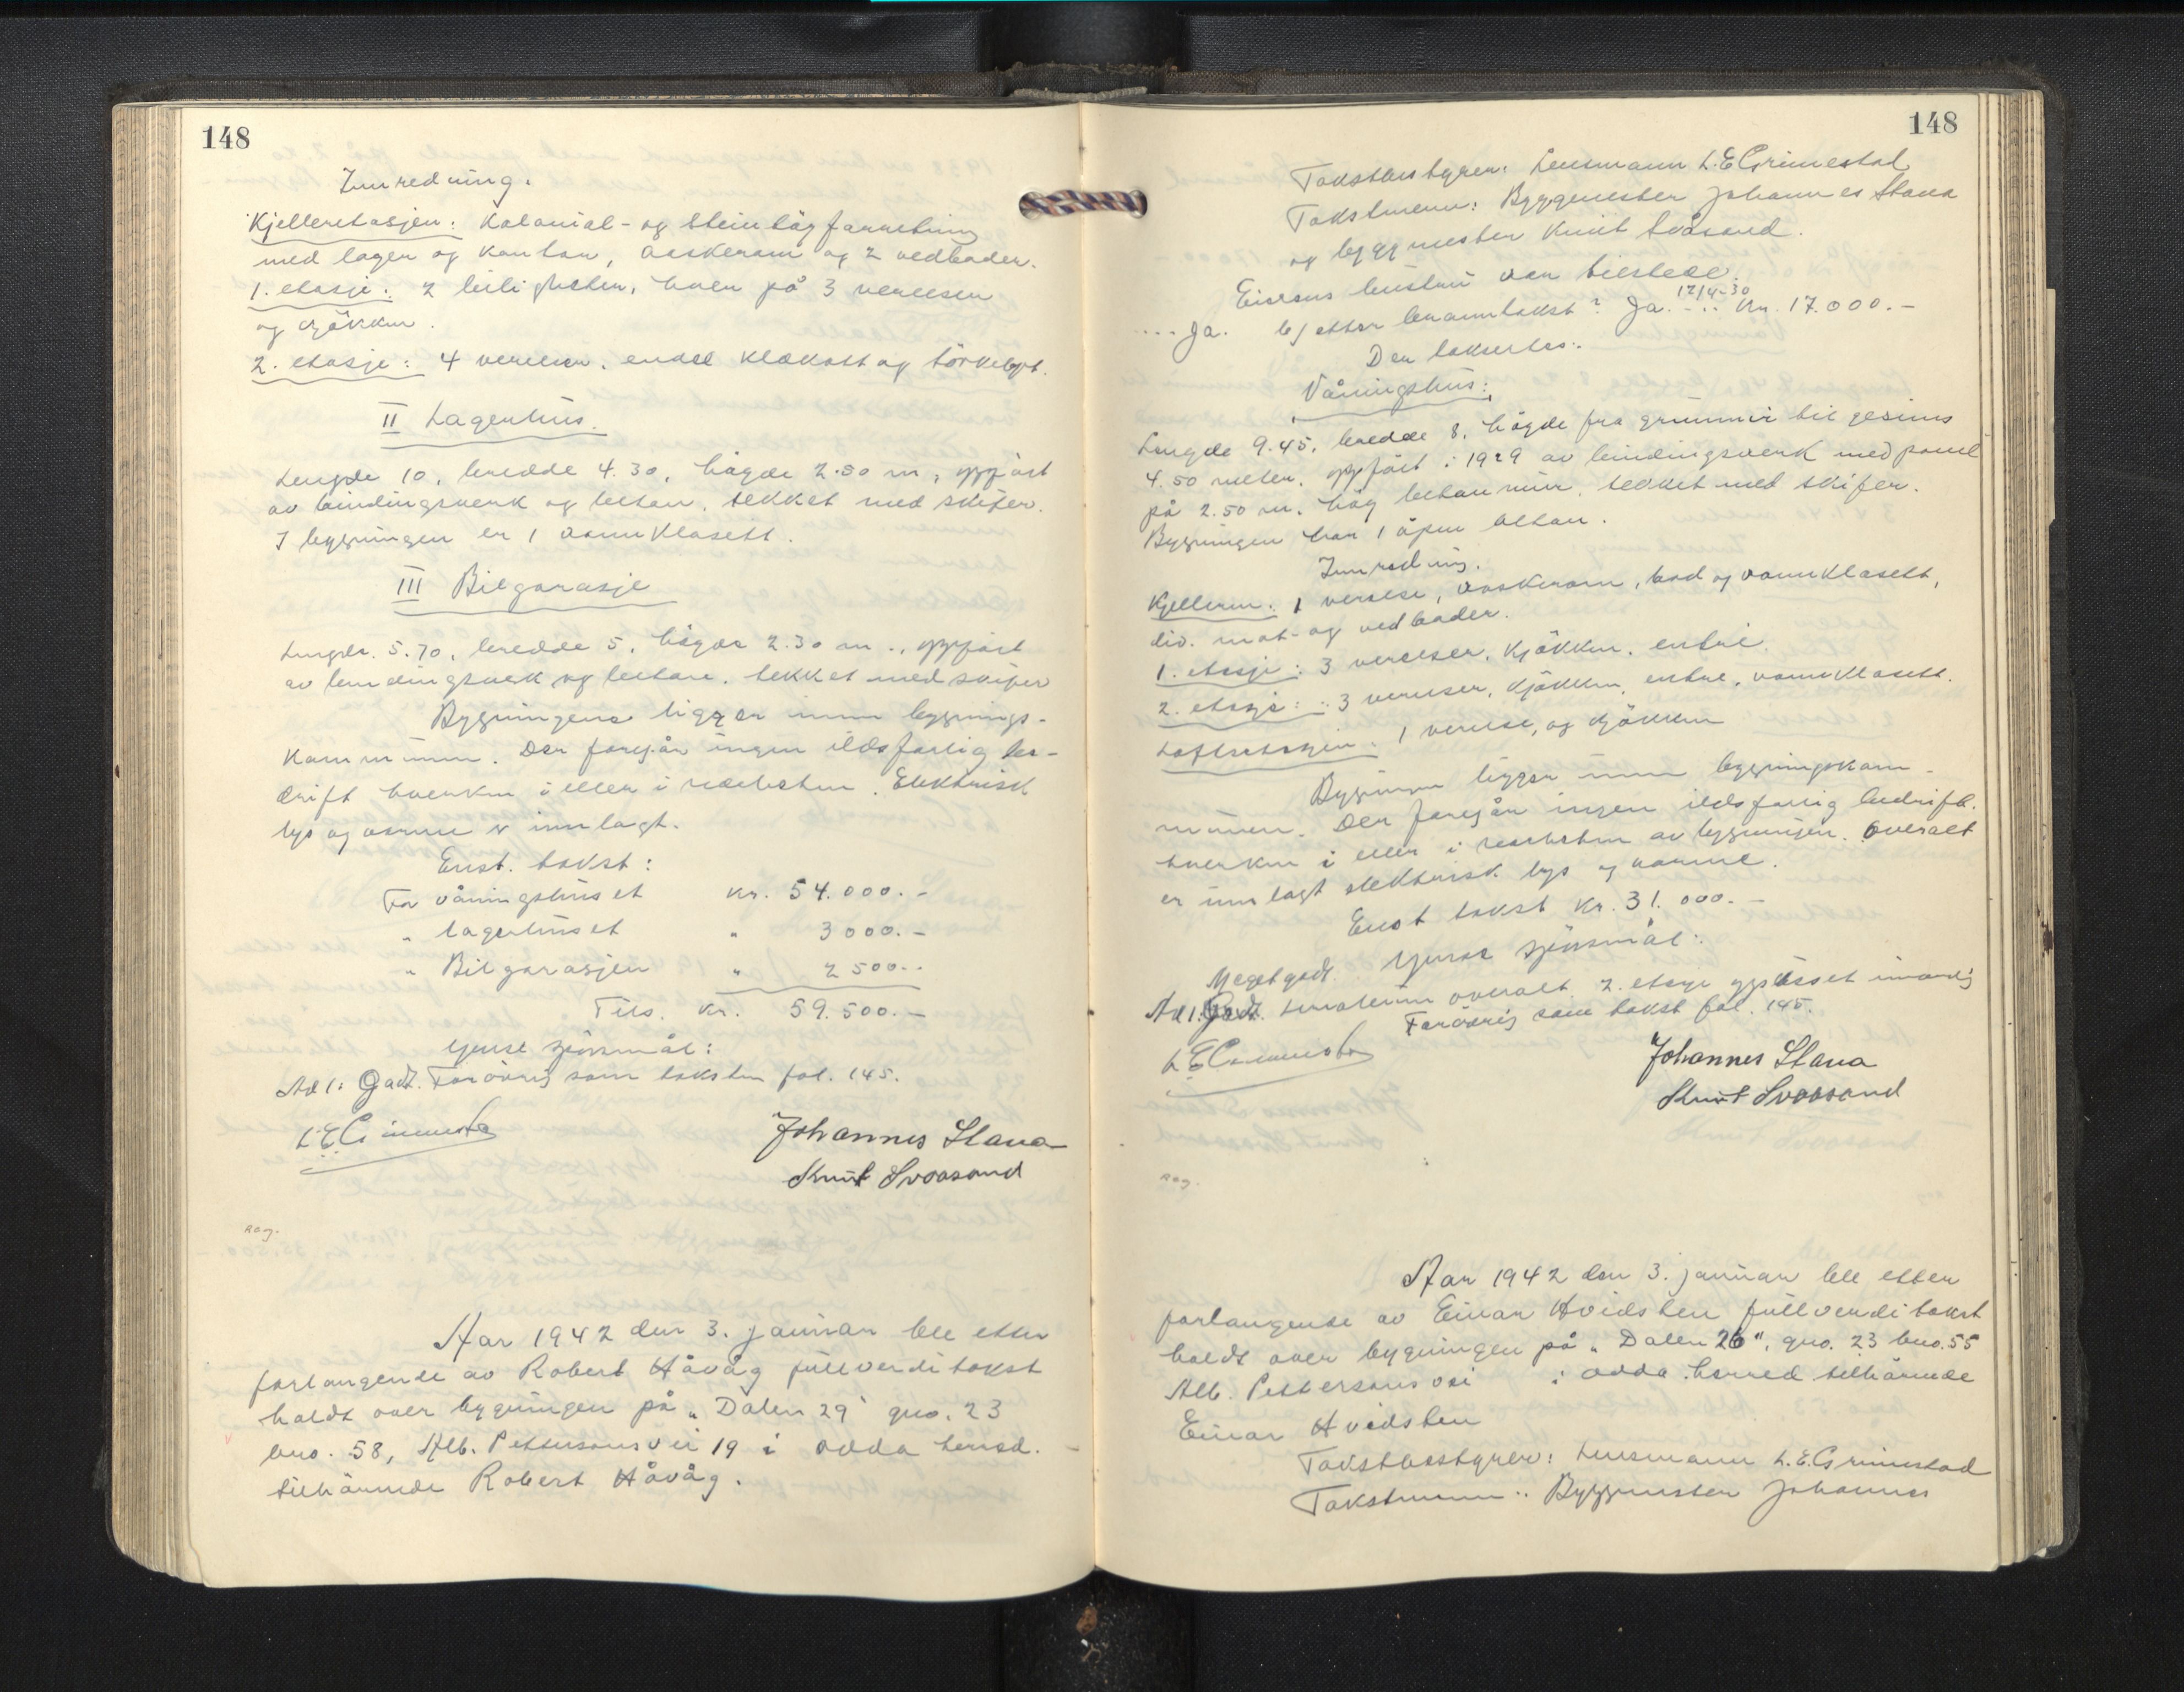 148
Innredning.
Kjelleretasjen: Kolonial- og steintöyforretning
med lager og kontor, vaskerom og 2 vedboder.
1. etasje: 2 leiligheter, hver på 3 værelser
og kjökken.
2. etasje: 4 værelser, endel klækott og törkeloft.
II Lagerhus.
Lengde 10, bredde 4.30, högde 2.50 m, oppfört
av bindingsverk og beton, tekket med skifer.
I bygningen er 1 vannklosett.
III Bilgarasje
Lengde 5.70, bredde 5, högde 2.30 m., oppfört
av bindingsverk og betong, tekket med skifer
Bygningene ligger innen bygnings-
kommunen. Der foregår ingen ildsfarlig be-
drift hverken i eller i nærheten. Elektrisk
lys og varme er innlagt.
Enst. takst:
For våningshuset kr. 54.000.-
" lagerhuset " 3000.-
" Bilgarasjen " 2500.-
Tils. kr. 59.500.-
Ymse spörsmål:
Ad 1: Godt. Forövrig som taksten fol. 145.
L.E. Grimestad
Johannes Stana
Knut Svoasand
Rag.
Aar 1942 den 3. januar ble etter
forlangende av Robert Håvåg fullverditakst
holdt over bygningen på "Dalen 29" gno. 23
bno. 58, Alb. Pettersons vei 19 i Odda herred.
tilhörende Robert Håvåg.
148
Takstbestyrer: Lensmann L.E. Grimestad
Takstmenn: Byggmester Johannes Stana
og byggmester Knut Svåsand.
Eierens hustru var tilstede.
.... Ja. b) etter branntakst? Ja. 12/4-30 kr. 17.000.-
Den takseres:
Våningshus:
Lengde 9.45, bredde 8, högde fra grunnmur til gesims
4.50 meter, oppfört i 1929 av bindingsverk med panel
på 2.50 m. höy betonmur, tekket med skifer.
Bygningen har 1 åpen altan.
Innredning.
Kjelleren: 1 værelse, vaskerom, bad og vannklosett,
div. mat- og vedboder.
1. etasje: 3 værelser, kjökken, entré.
2. etasje: 3 værelser, kjökken, entre, vannklosett.
Loftsetasjen: 1 værelse, og kjökken
Bygningen ligger innen bygningskom-
munen. Der foregår ingen ildsfarlig bedrift
hverken i eller i nærheten av bygningen. Overalt
er innlagt elektrisk lys og varme.
Enst takst kr. 31.000.-
Ymse spörsmål:
Meget godt.
Ad 1. Godt. Linoleum overalt. 2. etasje oppusset innvendig
Forövrig som takst fol. 145.
L.E. Grimestad
Johannes Stana
Knut Svoasand
Rag.
Aar 1942 den 3. januar ble etter
forlangende av Einar Hvidsten fullverditakst
holdt over bygningen på "Dalen 26", gno. 23 bno. 55
Alb. Pettersons vei i Odda herred tilhörende
Einar Hvidsten
Takstbestyrer: Lensmann L.E. Grimestad
Takstmenn: Byggmester Johannes